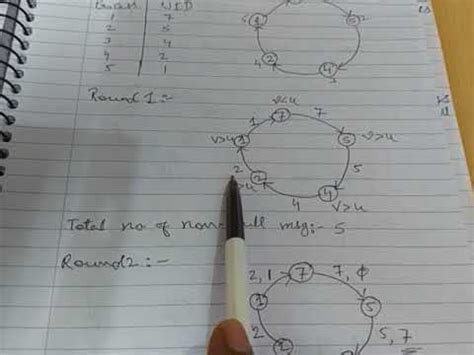 1 7
2 5
3 4
4 2
5 1
5 1 5 2
4 2 4 3
Round 1:-
v<u
1 7 7
v>u 1 5 v>u
2 5
2 4
4 v>u
Total no of non-null msg:- 5
Round2:-
2,1 7 7,ϕ
1 5
2 5,7
2